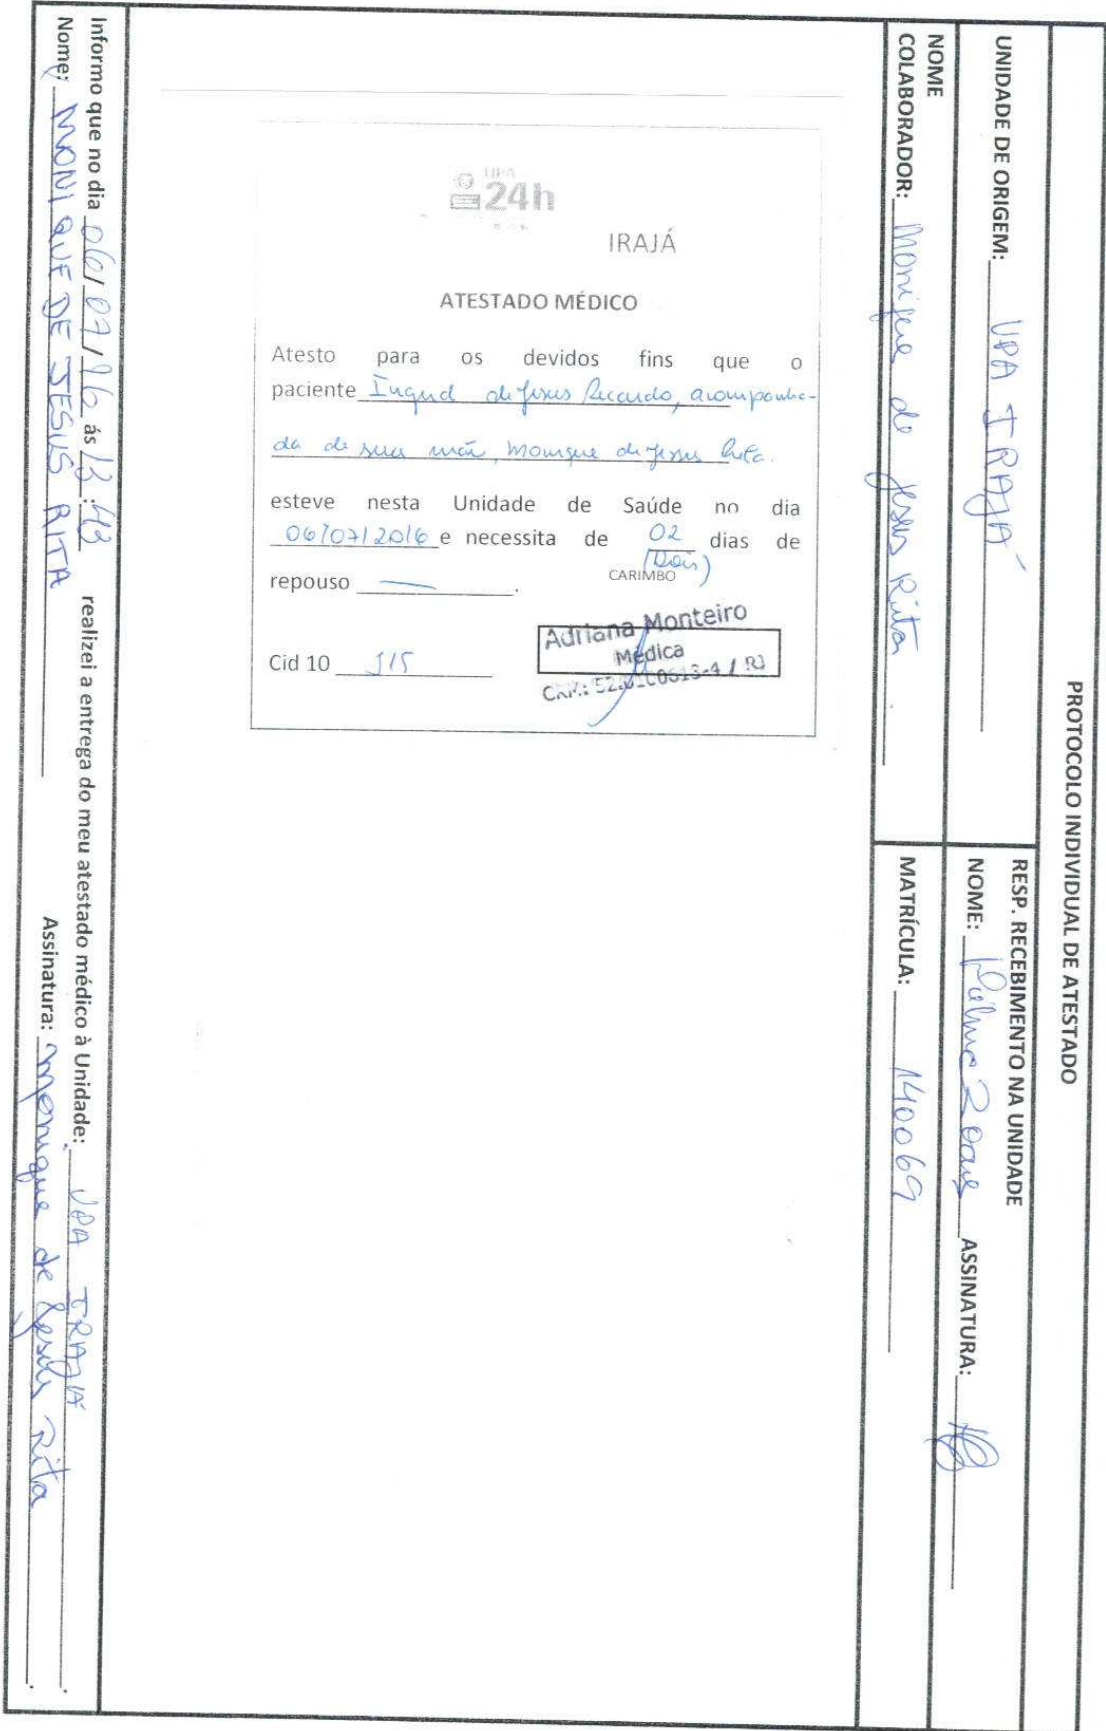 PROTOCOLO INDIVIDUAL DE ATESTADO
UNIDADE DE ORIGEM: UPA IRAJÁ
RESP. RECEBIMENTO NA UNIDADE
NOME: ASSINATURA:
NOME
COLABORADOR: Monique de Jesus Rita
MATRÍCULA: 140069
UPA
24h
IRAJÁ
ATESTADO MÉDICO
Atesto para os devidos fins que o
paciente de Jesus Ricardo, acompanha-
da de sua mãe, Monique de Jesus Rita.
esteve nesta Unidade de Saúde no dia
06/07/2016 e necessita de 02 dias de
(Dois)
CARIMBO
repouso
Adriana Monteiro
Médica
Cid 10 J15
Informo que no dia 06/07/16 ás 13:43 realizei a entrega do meu atestado médico à Unidade: UPA IRAJÁ.
Nome: MONIQUE DE JESUS RITA Assinatura: Monique de Jesus Rita.